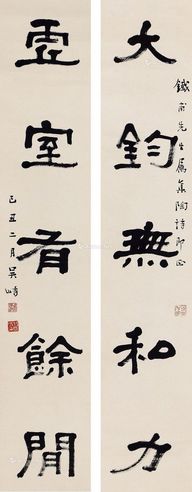 大鈞無私力
鐵先生屬集陶詩即正
虛室有餘閒
己丑二月吳